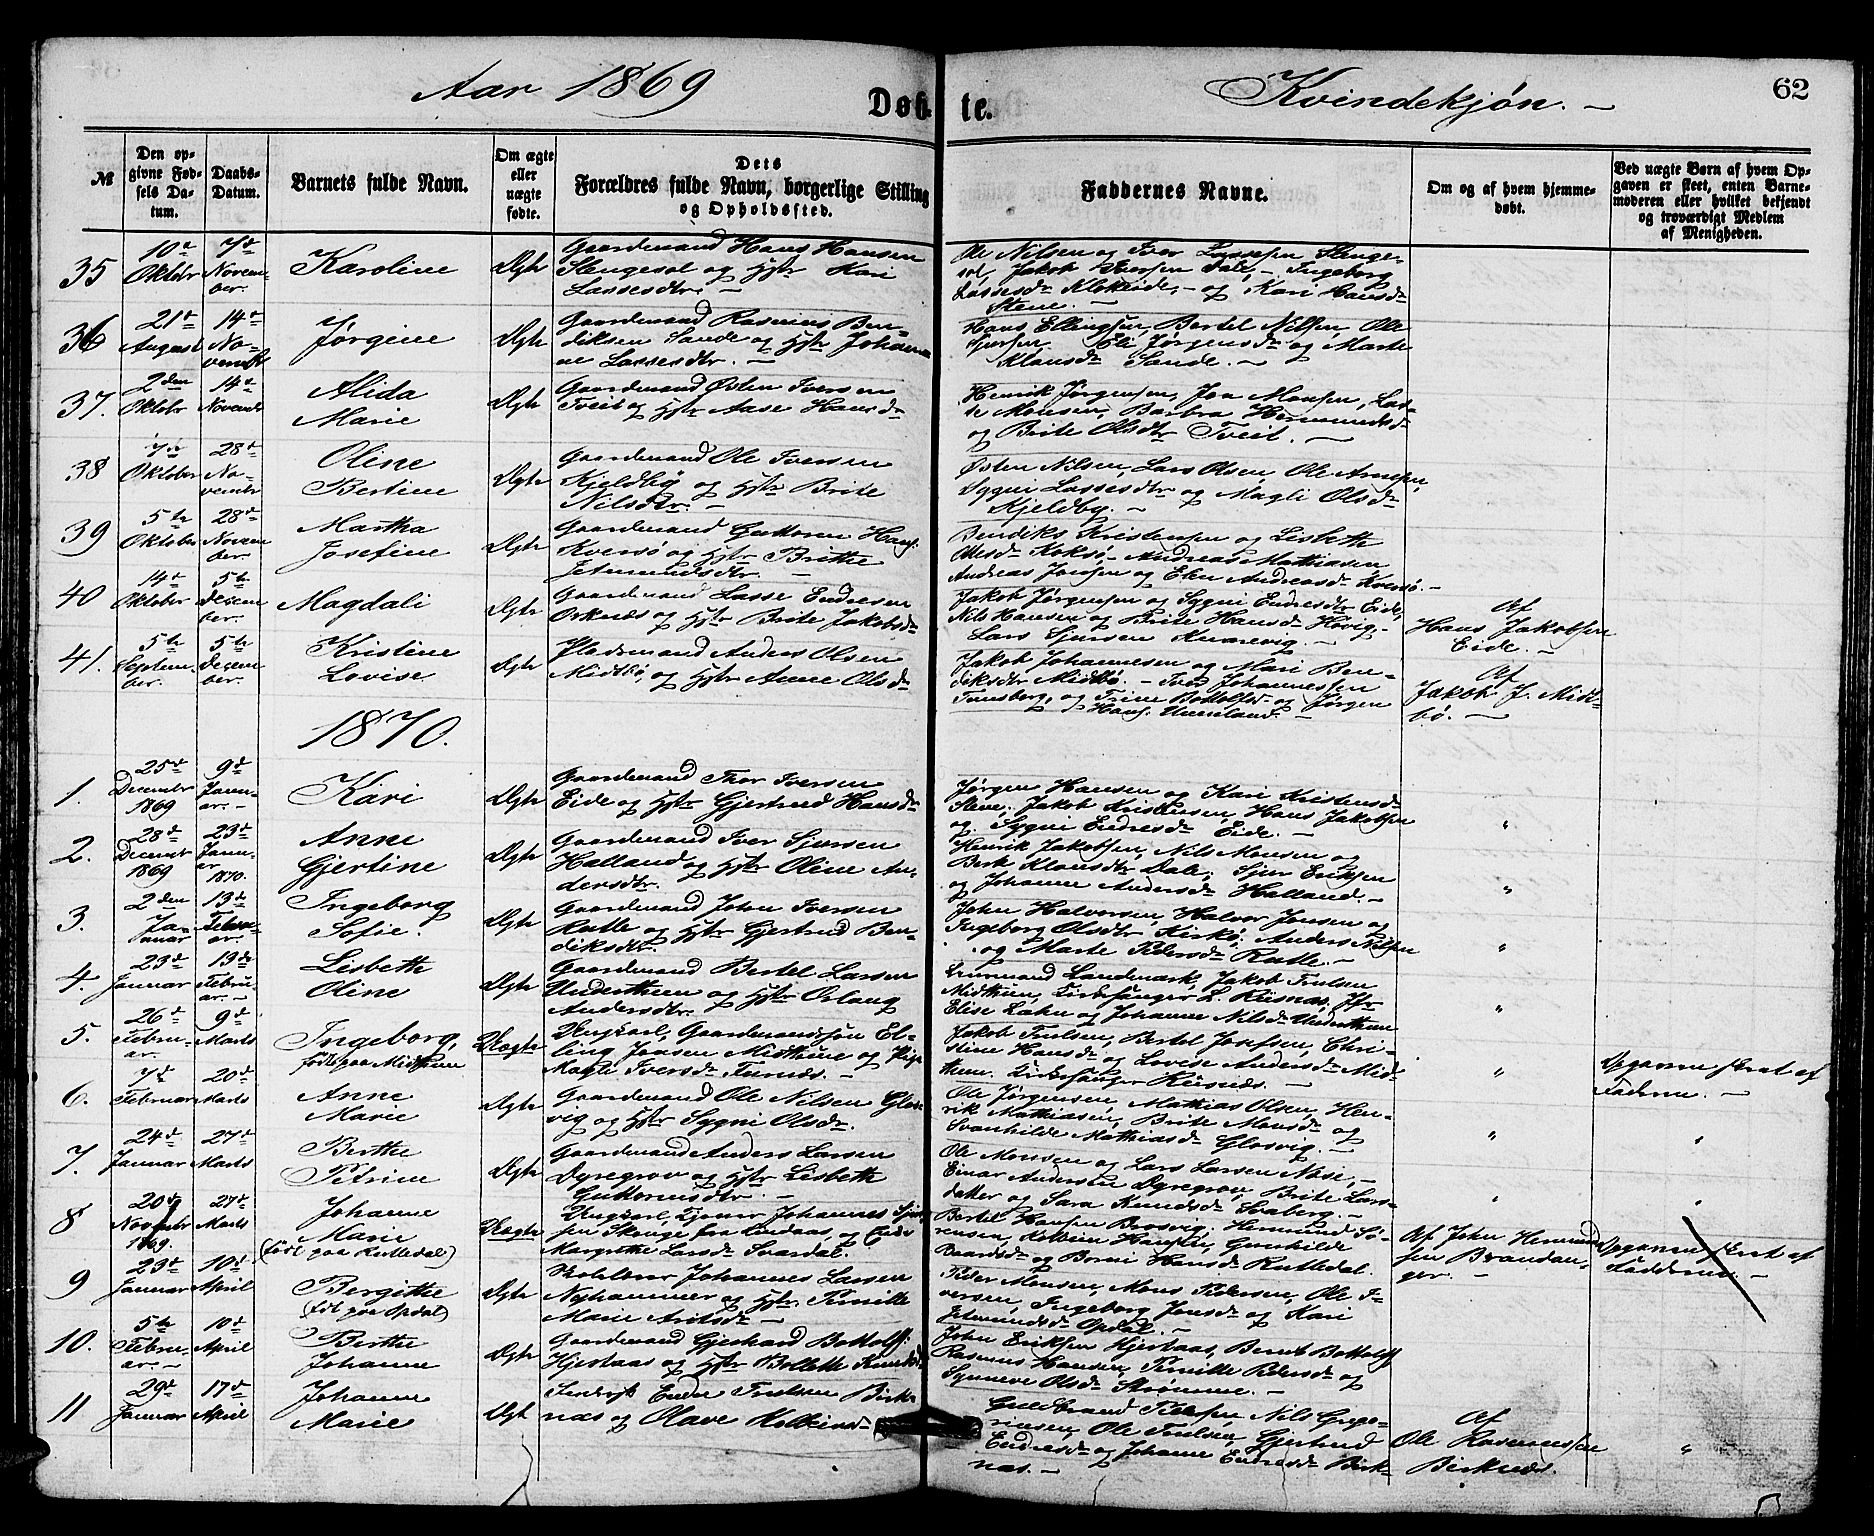 Aar 1869
Døbte.
Kvindekjøn. —
62
№
Den opgivne Fødsels Datum.
Daabs-Datum.
Barnets fulde Navn.
Om ægte eller uægte fødte.
Dets Forældres fulde Navn, borgerlige Stilling og Opholdssted.
Faddernes Navne.
Om og af hvem hjemmedøbt.
Ved uægte Børn af hvem Opgaven er skeet, enten Barnemoderen eller hvilket bekjendt og troværdigt Medlem af Menigheden.
35
10de Oktobr
7de November.
Karoline
Ægte
Gaardmand Hans Hansen
Slengesol og Hstr Kari
Lassesdtr. —
Ole Nilsen og Iver Lassesen Slenge-
sol, Jakob Dale, — Ingeborg
Lassesdr — og Kari Hansdr
Stene. —
36
21de August
14de Novembr
Jørgine
Ægte
Gaardmand Rasmus Ben-
diksen Sande og Hstr Johan
ne Lassesdtr. —
Hans Ellingsen, Bertel Nilsen, Ole
Sjursen. Eli Jørgensdr og Marte
Klausdr Sande. —
37.
2den Oktobr
14de Novembr
Alida
Marie
Ægte
Gaardmand Østen Iversen
Tveit og Hstr Aase Hansdr
Henrik Jørgensen, Jon Monsen, Las-
se Monsen, Barbra Hermundsdr
og Brite Olsdtr Tveit. —
38
7de Oktober
28de Novembr
Oline
Bertine
Ægte
Gaardmand Ole Iversen
Kjeldby og Hstr Brite
Nilsdtr. —
Østen Nilsen, Lars Olsen, Ole Arnesen,
Sygni Lassesdtr og Magli Olsdr
Kjeldby. —
39
5te Oktober
28de November.
Martha
Josefine
Ægte
Gaardmand Guttorm Hans.
Kversø og Hstr Brithe
Jetmundsdtr. —
Bendiks Kristensen og Lisbeth
Olesdr Koksø, Andreas Mathiasen
Andreas Jensen og Elen Andreasdr Kversø. —
40
14de Oktober
5te Desember.
Magdali
Ægte
Gaardmand Lasse Endresen
Orknes og Hstr Brite Jakobsdr
Jakob Jørgensen og Sygni Endresdtr Eide,
Nils Hansen og Brite Hansdr Høvig,
Lars Sjursen —
Af
Hans Jakobsen
Eide. —
41.
5te September.
5te Desember.
Kristine
Lovise
Ægte
Pladsmand Anders Olsen
Midtbø, og Hstr Anne Olsdr
Jakob Johannesen og Mari Ben-
diksdtr Midtbø. — Iver Johannessen
Tunsberg, og Trine Bottolfsdr og Jørgen
Hans. —
Af
Jakob J. Midt-
bø. —
1870.
1.
25de Decembr 1869
9de Januar. —
Kari
Ægte
Gaardmand Thor Iversen
Eide og Hstr Gjertrud Hansdr
Jørgen Hansen og Kari Kristensdr
Stene, Jakob Kristensen, Hans Jakobsen
og Sygni Endresdr Eide. —
"
2.
28de Decembr 1869
23de Januar 1870.
Anne
Gjertine
Ægte
Gaardmand Iver Sjursen
Halland og Hstr Oline An-
dersdtr.
Henrik Jakobsen, Nils Monsen og
Berte Klausdtr Dale, Sjur Eriksen
og Johanne Andersdr Halland. —
"
3.
2den Januar
13de Februar.
Ingeborg
Sofie.
Ægte
Gaardmand John Iversen
Ratle og Hstr Gjertrud Ben-
diksdtr.
John Halvorsen, Halvor Jensen og
Ingeborg Olsdtr Kirkø, Anders Nilsen
og Marte Pedersdr Ratle. —
"
4.
23de Januar
13de Februar. —
Lisbette
Oline
Ægte
Gaardmand Bertel Larsen
Underthun og Hstr Orlaug
Andersdtr.
Landmark, Jakob Trulsen
Midthun, Kirkesanger L. Riisnæs, Jfr
Elise Lahn og Johanne Nilsdr Underthun
"
5.
26de Februar.
9de Marts
Ingeborg,
født paa Midthun
Uægte
Ungkarl, Gaardmandssøn El-
ling Jonsen Midthun og Pige
Magli Iversdr —
Jakob Trulsen, Bertel Josefsen, Chri-
stine Hansdr og Lovise Andersdr Mid-
thun. Kirkesanger Riisnæs. —
"
Opgaven skeet af
Faderen. —
6.
7de Februar
20de Marts
Anne
Marie
Ægte
Gaardmand Ole Nilsen Glos-
vig og Hstr Sygni Olsdr.
Ole Jørgensen, Mathias Olsen, Hen-
rik Mathiasen, Brite Monsdr og
Svanhilde Mathiasdr Glosvig. —
"
7.
24de Januar
27de Marts
Berthe
Petrine
Ægte
Gaardmand Anders Larsen
Dyregrov og Hstr Lisbeth
Guttormsdtr. —
Ole Monsen og Lars Larsen Nose, —
Einar Andersen Dyregrov, Brite Lars-
datter og Sara Knudsdr Soaberg. —
8
20de Novembr 1869.
27de Marts
Johanne
Marie
(født paa Rutledal)
Uægte
Ungkarl, Johannes Sjur-
sen Skauge fra Lindaas, og Enke
Margrethe Larsdr Svardal.
Bertel Hansen Brosvig, Hermund Sø-
rensen, Hansen, Gunhilde
Baardsdr og Borni Hansdr Rutledal.
Af John Hermund-
sen Brandan-
ger. —
Opgaven skeet af
Fadderne. —
9
23de Januar
10de April
Bergitte
(født paa Opdal)
Ægte
Johannes Larsen
Nyhammer og Hstr. Pernille
Marie Aritsdr —
Peder Monsen, Mons Pedersen, Ole I-
versen, Ingeborg Jonsdr og Kari
Jetmundsdr Opdal. —
10.
5te Februar. —
10de April
Berthe
Johanne
Ægte
Gaardmand Gjerhard Bottolfs.
Hjertaas og Hstr Bollette Knudsdr
John Eriksen Hjertaas, Bernt Bottolfs.
Rasmus Hansen, Pernille Pedersdr og
Synneve Olsdr Strømme. —
11
29de Januar
17de April
Johanne
Marie
Ægte
Endre Trulsen Birk-
næs og Olave
Guldbrand Nils Grego-
riusen, Ole Trulsen, Gjertrud
Endresdr og Johanne Endresdr Birk-
næs. —
Af
Ole Rasmussen
Birknæs.
"